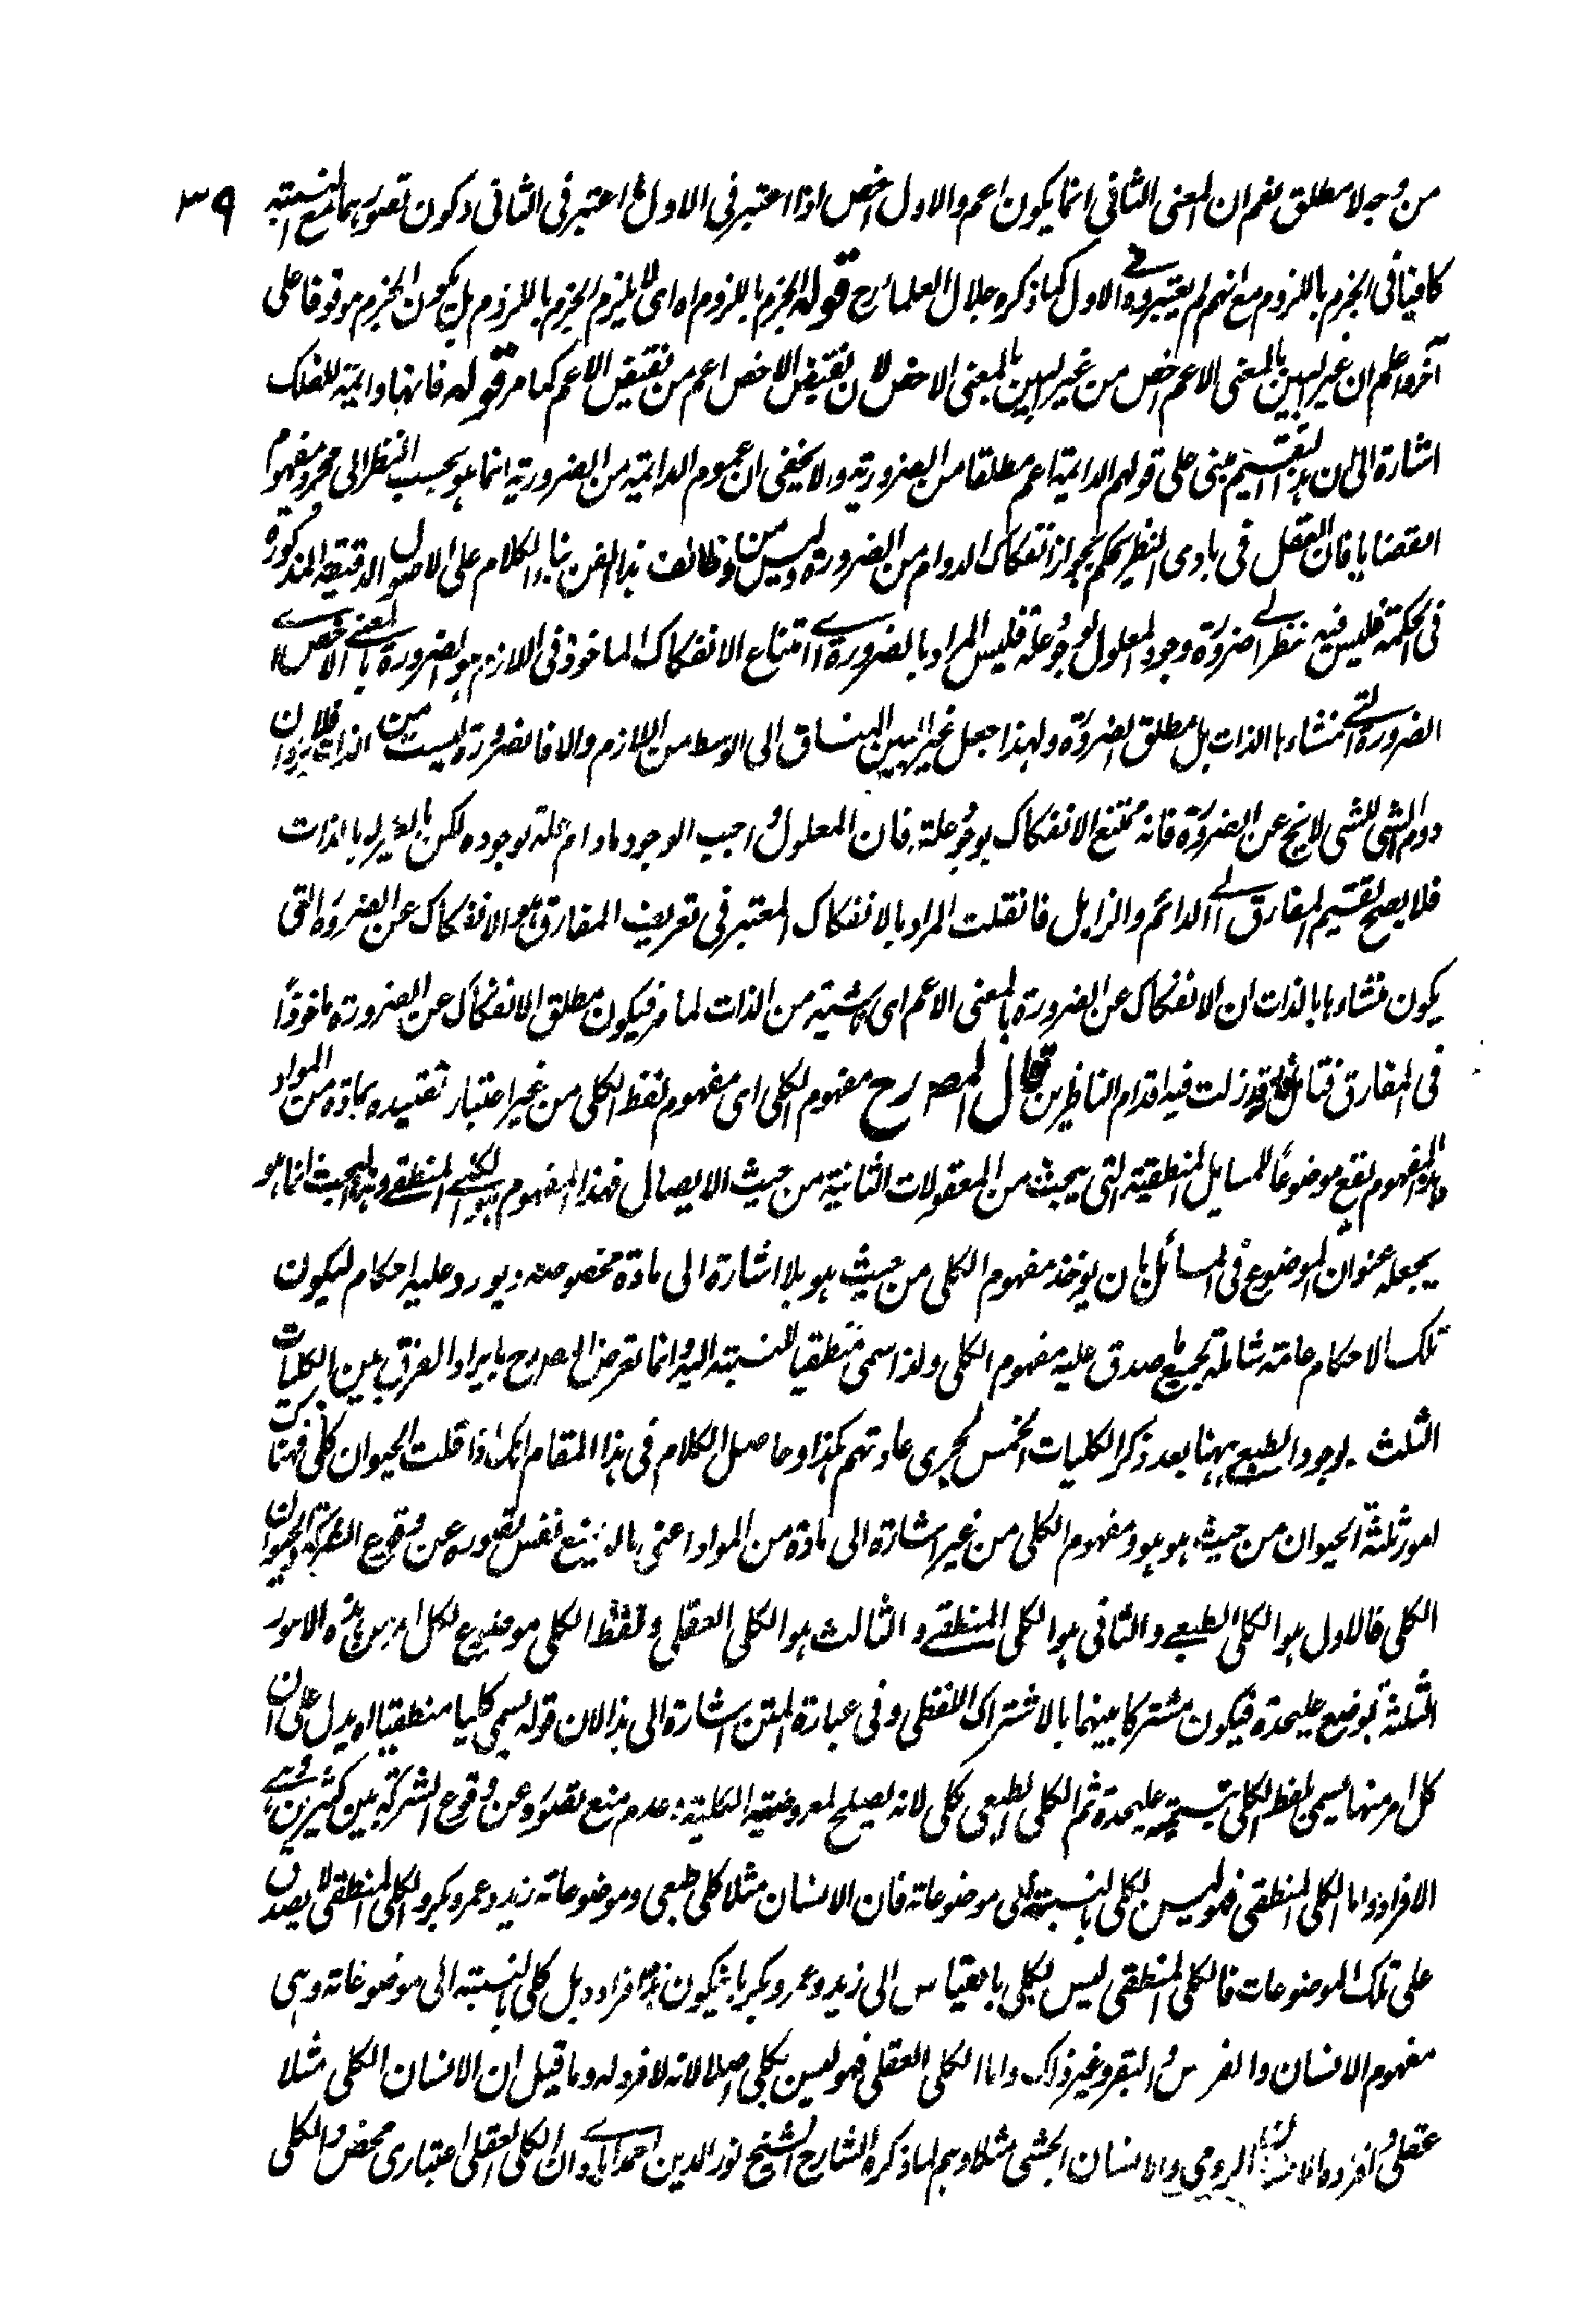 ٣٩
من وجه لا مطلق نعم ان المعنى الثاني انما يكون اعم والاول اخص اذا اعتبر في الاول ما اعتبر في الثاني وكون تصورهما مع النسبة
كافيا في الجزم باللزوم مع انهم لم يعتبروه في الاول كما ذكره جلال العلماء رح قوله الجزم باللزوم اه اى لا يلزم الجزم باللزوم بل يكون الجزم موقوفا على
آخر واعلم ان غير البين بالمعنى الاعم اخص من غير البين بالمعنى الاخص لان نقيض الاخص اعم من نقيض الاعم كما مر قوله فانها دائمة للفلك
اشارة الى ان هذا التقسيم مبنى على قولهم الدائمة اعم مطلقا من الضرورية ولا يخفى ان عموم الدائمة من الضرورية انما هو بحسب النظر الى مجرد مفهوم
القضايا فان العقل في بادى النظر يحكم بجواز انفكاك الدوام من الضرورة وليس من وظائف هذا الفن بناء الكلام على الاصول الدقيقة المذكورة
في الحكمة فليس فيه نظر الى ضرورة وجود المعلول لوجود علته فليس المراد بالضرورة اى امتناع الانفكاك الماخوذ في اللازم هو الضرورة بالمعنى الاخص اى
الضرورة التى منشاءها الذات بل مطلق الضرورة ولهذا جعل غير البين المنساق الى الوسط من اللازم والا فالضرورة ليست من الذات فلا يرد ان
دوام الشى للشى لا يخ عن الضرورة فانه ممتنع الانفكاك بوجود علته فان المعلول واجب الوجود مادام علة لوجوده لكن بالغير لا بالذات
فلا يصح تقسيم المفارق الى الدائم والزايل فان قلت المراد بالانفكاك المعتبر في تعريف المفارق هو الانفكاك عن الضرورة التى
يكون منشاءها بالذات ان الانفكاك عن الضرورة بالمعنى الاعم اى ناشية من الذات لما مر فيكون مطلق الانفكاك عن الضرورة ماخوذاً
في المفارق فتامل فانه قد زلت فيه اقدام الناظرين قال المصرح مفهوم الكلى اى مفهوم لفظ الكلى من غير اعتبار تقييده بمادة من المواد
وهذا المفهوم يقع موضوعاً للمسايل المنطقية التى يبحث من المعقولات الثانية من حيث الايصال فهذا المفهوم هو الكلى المنطقي وهذا البحث انما هو
يجعله عنوان الموضوع في المسائل بان يوخذ مفهوم الكلى من حيث هو بلا اشارة الى مادة مخصوصة ويورد عليه احكام ليكون
تلك الاحكام عامة شاملة لجميع ما صدق عليه مفهوم الكلى ولذا سمى منطقيا للنسبة اليه وانما تعرض المصرح بايراد الفرق بين الكليات
الثلث بوجود الطبعي ههنا بعد ذكر الكليات الخمس لجرى عادتهم هكذا وحاصل الكلام في هذا المقام انك اذا قلت الحيوان كلى فهناك
امور ثلثة الحيوان من حيث هو هو ومفهوم الكلى من غير اشارة الى مادة من المواد اعنى ما لا يمنع نفس تصوره عن وقوع الشركة والحيوان
الكلى فالاول هو الكلى الطبعي والثاني هو الكلى المنطقي والثالث هو الكلى العقلى ولفظ الكلى موضوع لكل امر من هذه الامور
الثلثة بوضع عليحدة فيكون مشتركا بينهما بالاشتراك اللفظى وفى عبارة المتن اشارة الى هذا لان قوله يسمى كليا منطقيا اه يدل على ان
كل امر منها يسمى بلفظ الكلى بتسمية عليحدة ثم الكلى الطبعى كلى لانه يصلح لمعروضية الكلية وعدم منع تصوره عن وقوع الشركة بين كثيرين وهى
الافراد واما الكلى المنطقى فهو ليس بكلى بالنسبة الى موضوعاته فان الانسان مثلا كلى طبعى وموضوعاته زيد وعمرو بكر والكلى المنطقى لا يصدق
على تلك الموضوعات فالكلى المنطقى ليس بكلى بالقياس الى زيد وعمرو بكر بان يكون هذا افراده بل كلى بالنسبة الى موضوعاته وهى
مفهوم الانسان والفرس والبقر وغير ذلك واما الكلى العقلى فهو ليس بكلى اصلا لانه لا فرد له وما قيل ان الانسان الكلى مثلا
عقلى وافراده الانسان الرومى والانسان الحبشى مثلا وهم لما ذكره الشارح الشيخ نور الدين احمد ابادى وان الكلى العقلى اعتبارى محض والكلى